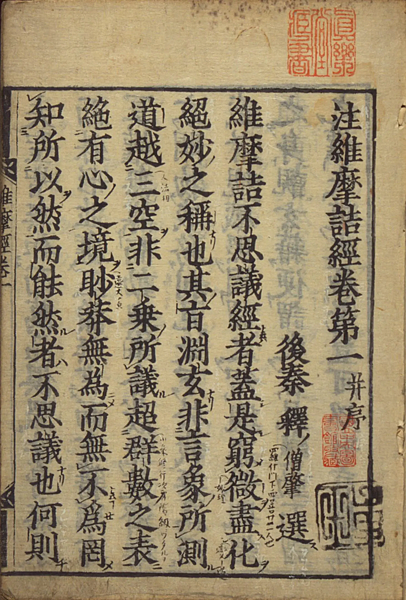 注維摩詰經卷第一 并序
後秦釋僧肇選
維摩詰不思議經者蓋是窮微盡化
絕妙之稱也其旨淵玄非言象所測
道越三空非二乘所議超群數之表
絕有心之境眇莽無為而無不為罔
知所以然而能然者不思議也何則
維摩經卷一